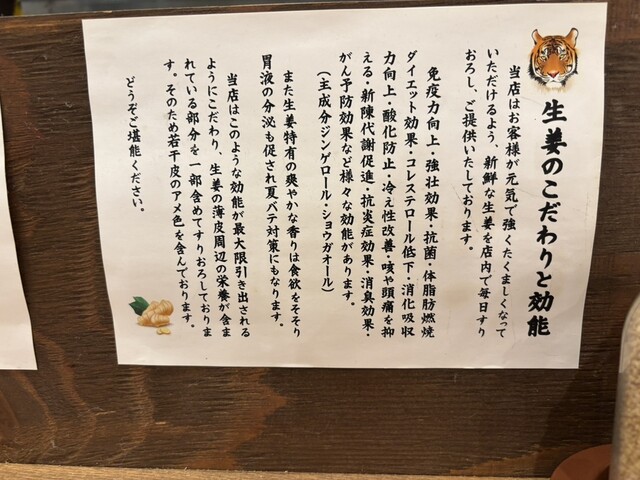 生姜のこだわりと効能
当店はお客様が元気で強くたくましくなって
いただけるよう、新鮮な生姜を店内で毎日すり
おろし、ご提供いたしております。
免疫力向上・強壮効果・抗菌・体脂肪燃焼
ダイエット効果・コレステロール低下・消化吸収
力向上・酸化防止・冷え性改善・咳や頭痛を抑
える・新陳代謝促進・抗炎症効果・消臭効果・
がん予防効果など様々な効能があります。
(主成分ジンゲロール・ショウガオール)
また生姜特有の爽やかな香りは食欲をそそり
胃液の分泌も促され夏バテ対策にもなります。
当店はこのような効能が最大限引き出される
ようにこだわり、生姜の薄皮周辺の栄養が含ま
れている部分を一部含めてすりおろしておりま
す。そのため若干皮のアメ色を含んでおります。
どうぞご堪能ください。